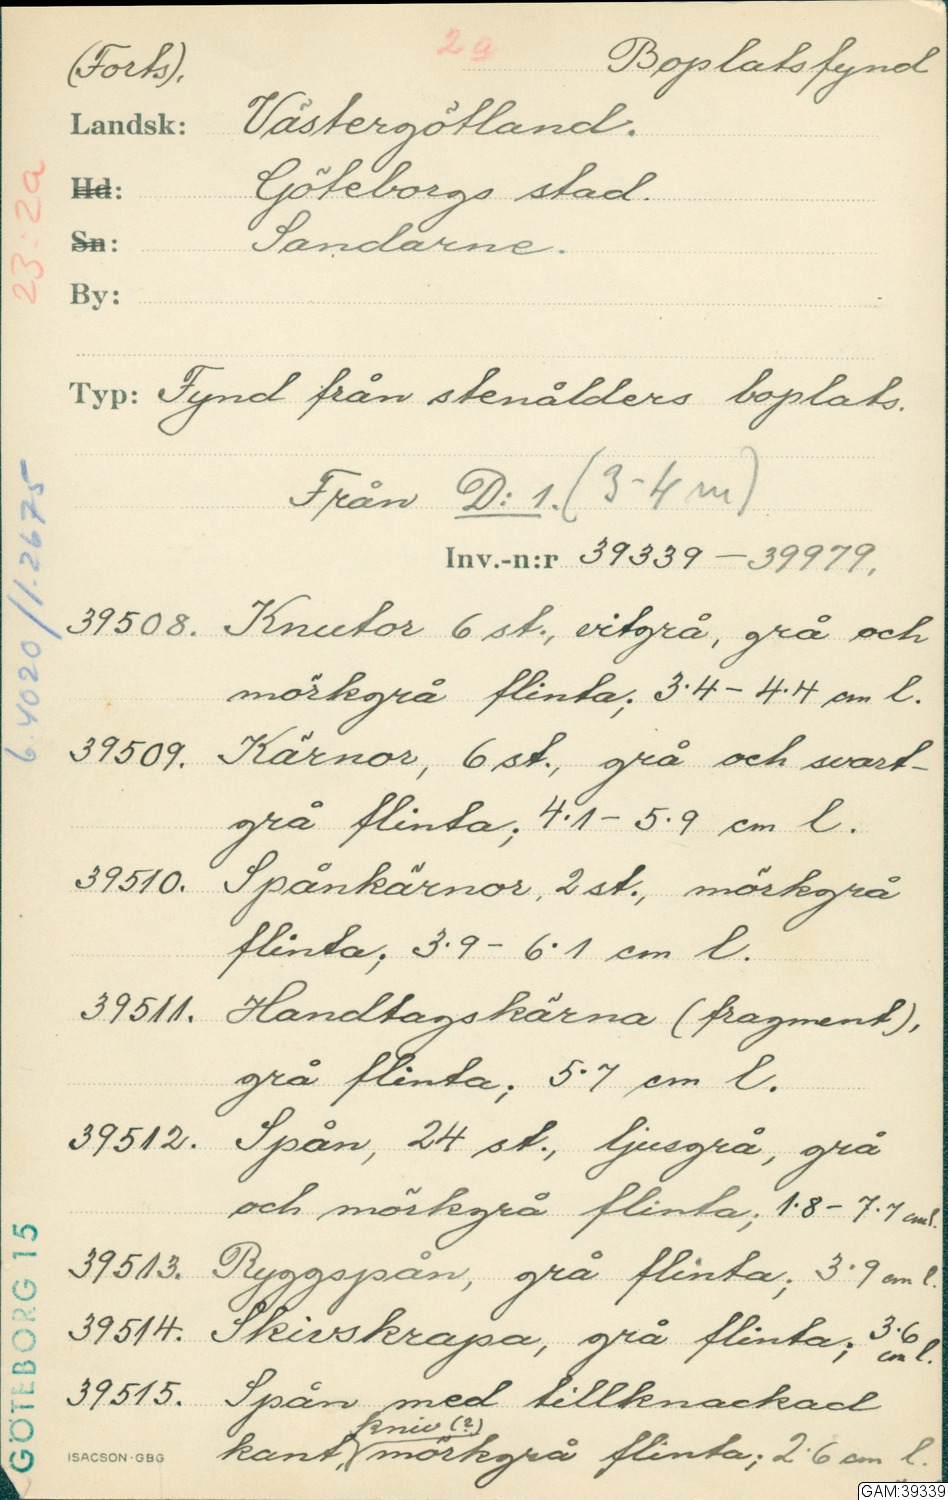 (Forts).
2a
Boplatsfynd
Landsk: Västergötland.
Hd: Göteborgs stad.
Sn: Sandarne.
By:
23:2a
Typ: Fynd från stenålders boplats.
Från D: 1. (3-4 m)
Inv.-n:r 39339 – 39979.
6.4020/1.2675
39508. Knutor 6 st., vitgrå, grå och
mörkgrå flinta; 3.4 – 4.4 cm l.
39509. Kärnor, 6 st., grå och svart-
grå flinta; 4.1 – 5.9 cm l.
39510. Spånkärnor, 2 st., mörkgrå
flinta; 3.9 – 6.1 cm l.
39511. Handtagskärna (fragment),
grå flinta; 5.7 cm l.
39512. Spån, 24 st., ljusgrå, grå
och mörkgrå flinta; 1.8 – 7.7 cm l.
39513. Ryggspån, grå flinta; 3.9 cm l.
39514. Skivskrapa, grå flinta; 3.6
cm l.
39515. Spån med tillknackad
kniv (?)
kant, mörkgrå flinta; 2.6 cm l.
GÖTEBORG 15
ISACSON-GBG
GAM:39339